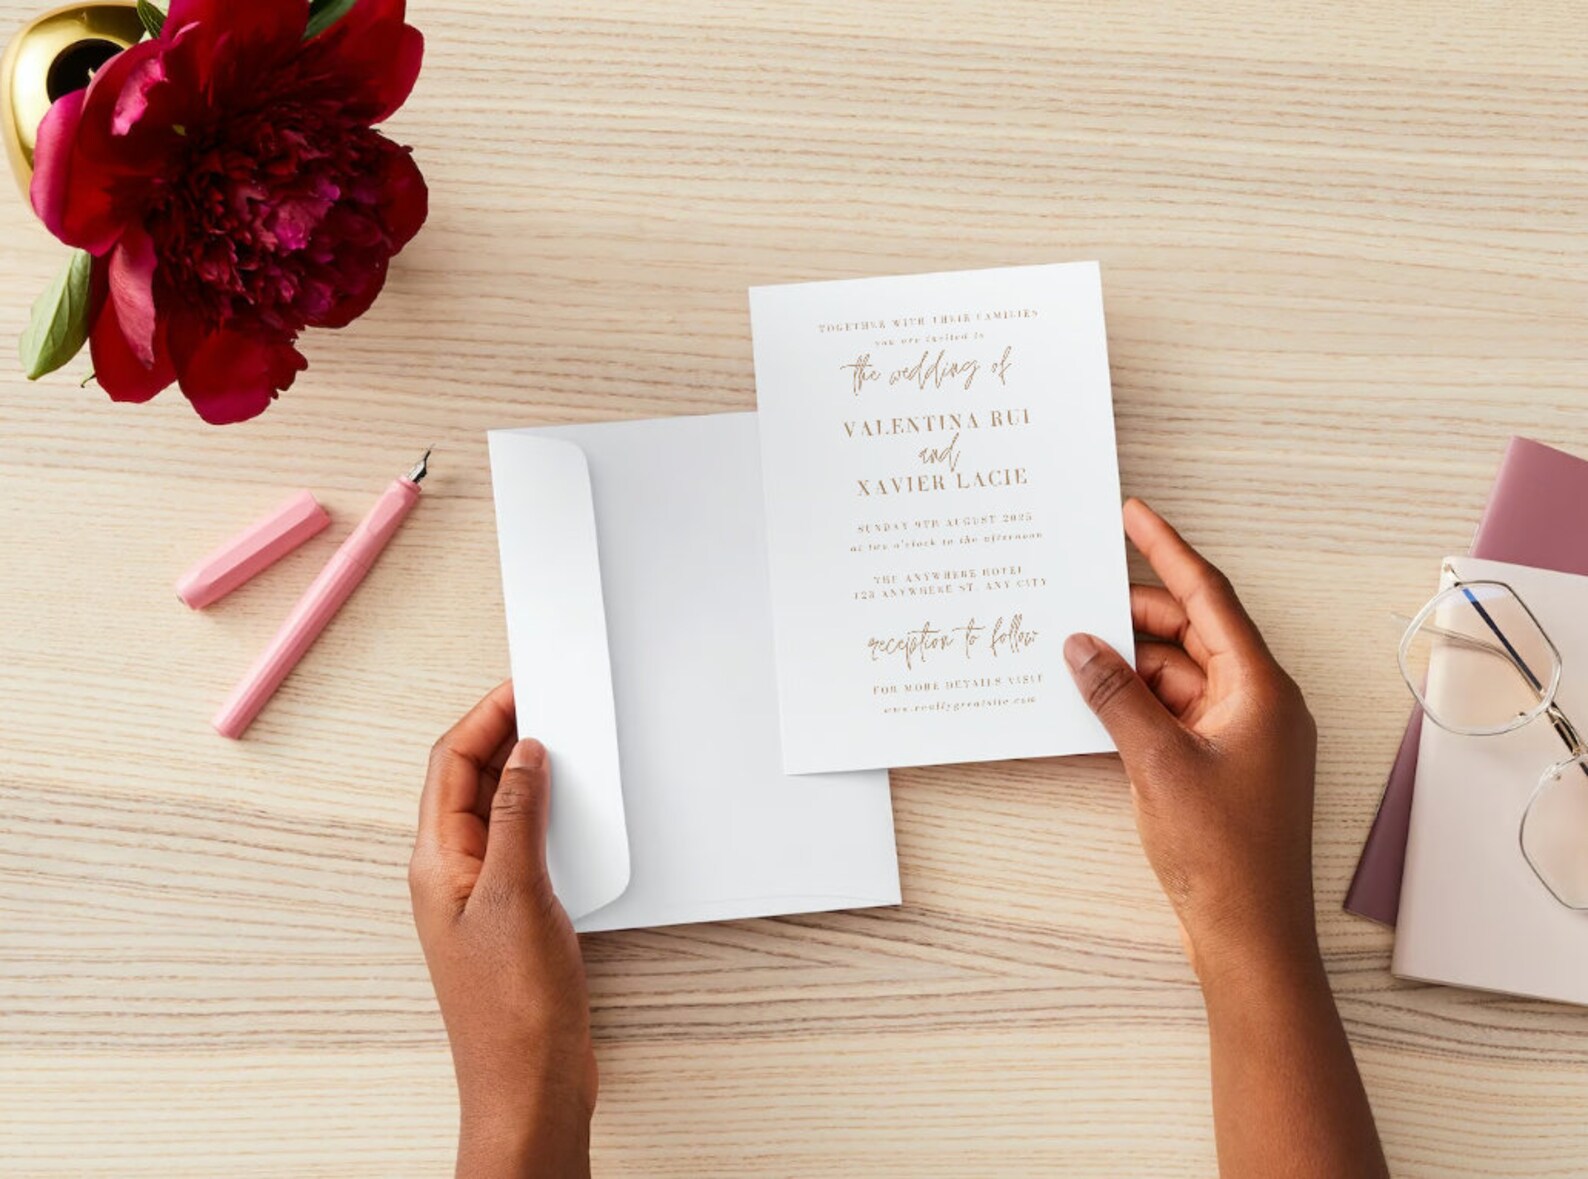 TOGETHER WITH THEIR FAMILIES
you are invited to
the wedding of
VALENTINA RUI
and
XAVIER LACIE
SUNDAY 9TH AUGUST 2025
at two o'clock in the afternoon
THE ANYWHERE HOTEL
123 ANYWHERE ST. ANY CITY
reception to follow
FOR MORE DETAILS VISIT
www.reallygreatsite.com